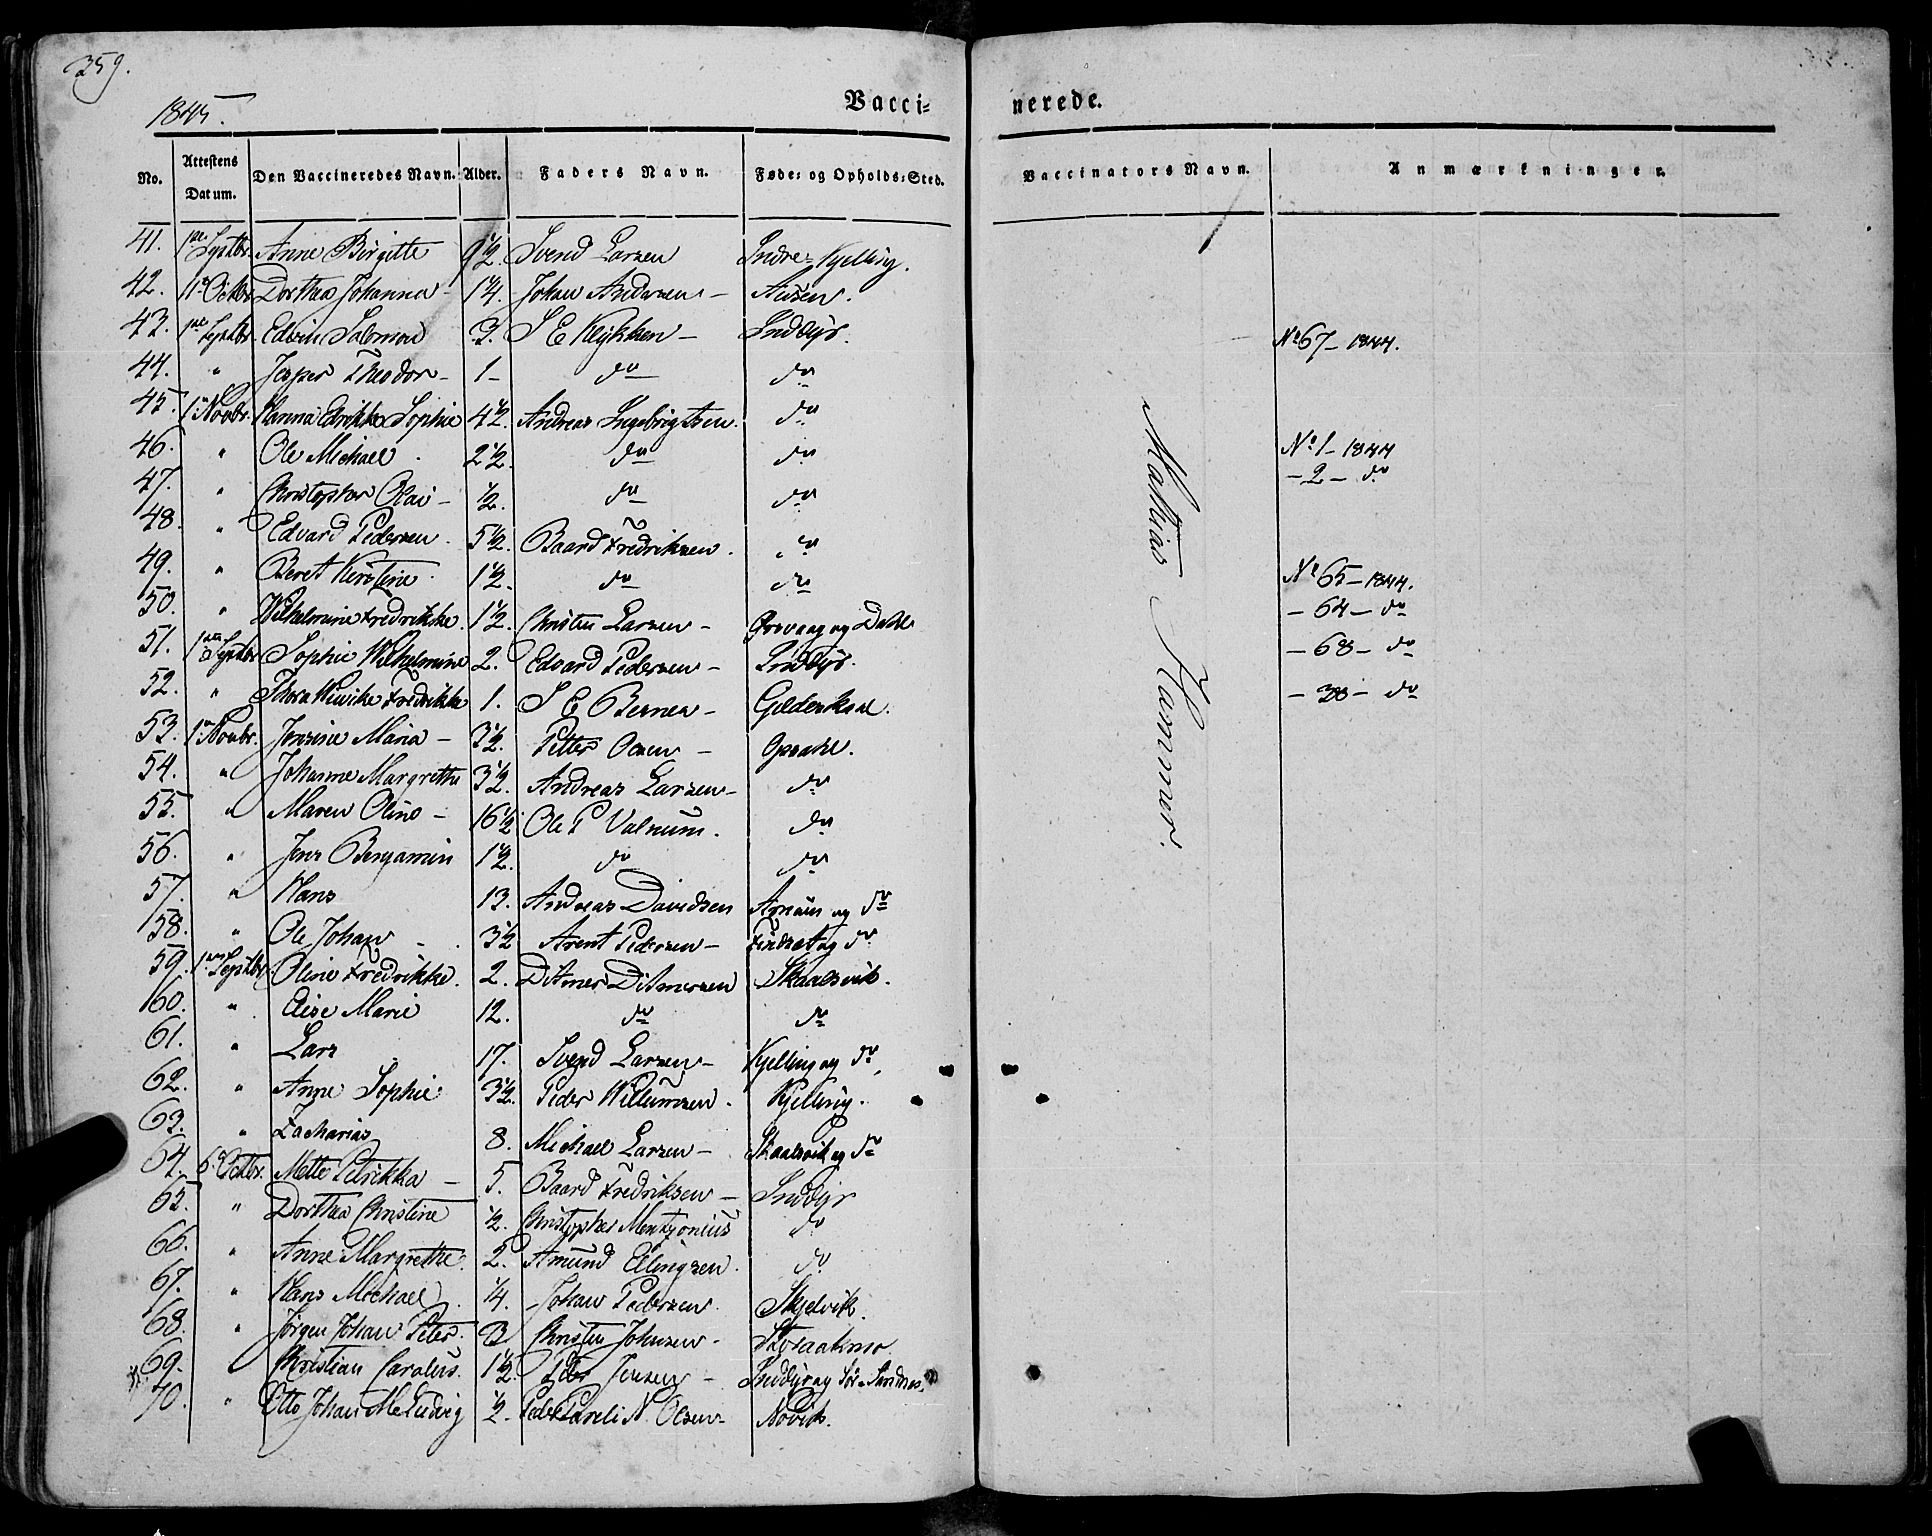 359.
1845.
Vacci= nerede.
No. Attestens Datum. Den Vaccineredes Navn. Alder. Faders Navn. Føde= og Opholds=Sted. Vaccinators Navn. Anmærkninger.
41. 1ste Septbr. Anne Birgitte 9 1/2. Svend Larsen Indre=Kjelling.
42. 1ste Octbr. Dorthea Johanna 1/4. Johan Andersen –
43. 1ste Septbr. Edvin Salomon 3. S E – Inddyr. No 67 – 1844.
44. " Jesper Theodor – 1 – do do
45. 1ste Novbr. Hanna Sophie 4 1/2. Andreas Ingebrigtsen. do
46. " Ole Michael 2 1/2. do do No 1 – 1844
47. " Christopher Olai – 1/2. do do – 2 – do
48. " Edvard Pedersen. 5 1/2. Baard Fredriksen. do
49. " Beret Kirstine 1 1/2. do do No 65 – 1844.
50. " Wilhelmine Fredrikke. 1 1/2. Christen Larsen – og Dahl – 64 – do
51. 1ste Septbr Sophie Wilhelmine 2. Edvard Pedersen – Inddyr. – 68 – do
52. " Fredrikke 1. S E – Gildeskaal. – 38 – do
53. 1ste Novbr. Jensine Maria – 3 1/2. Petter Olsen – Opsahl.
54. " Johanne Margrethe 3 1/2. Andreas Larsen – do
55. " Maren Oline – 16 1/2 Ole P Valnum. do
56. " Jens Benjamin 1 1/2. do do
57. " Hans 13. Andreas Davidsen og do
58. " Ole Johan – 3 1/2 Arent Pedersen – Findset og do
59. 1ste Septbr Oline Fredrikke. 2. Ditmer Ditmersen Skaalsvik.
60. " Elise Marie 12. do do
61. " Lars 17. Svend Larsen – Kjelling og do
62. " Anne Sophie 3 1/2. Peder Willumsen. Kjelling.
63. " Zacharias 8. Michael Larsen – Skaalsvik og do
64. Octbr. Mette Petrikka – 5. Baard Fredriksen – Inddyr
65. " Dorthea Christine 1/2. Christopher Mentzonius do
66. " Anne Margrethe. 2. Amund Ellingsen. do
67. " Hans Michael 1/4. Johan Pedersen. Skjelvik.
68. " Jørgen Johan Peter. 3 Christen Johnsen.
69. " Christian Carolus. 1 1/2. Peder Jensen – Inddyr og Sør=Sandnes.
70. " Otto Johan Ludvig 1/2. N. Olsen – Novik.
Mathias Hammer.